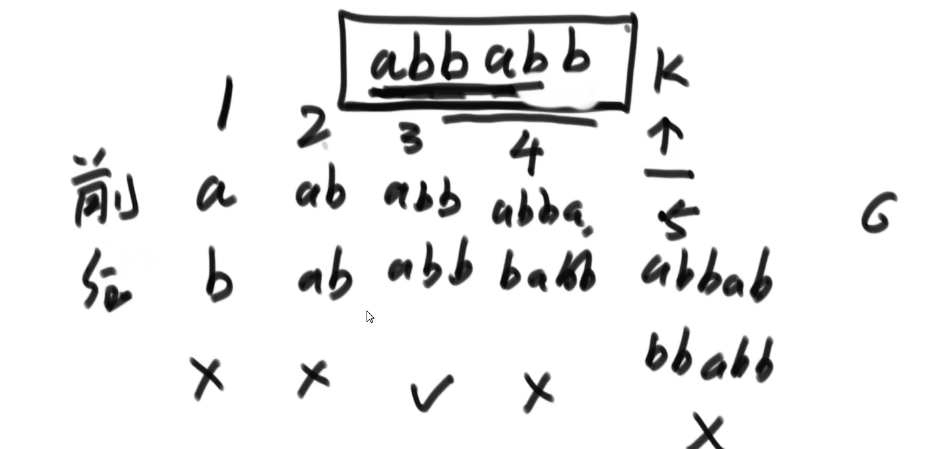 abbabb K
1 2 3 4 5 6
前 a ab abb abba abbab
后 b ab abb babb bbabb
× × ✓ × ×